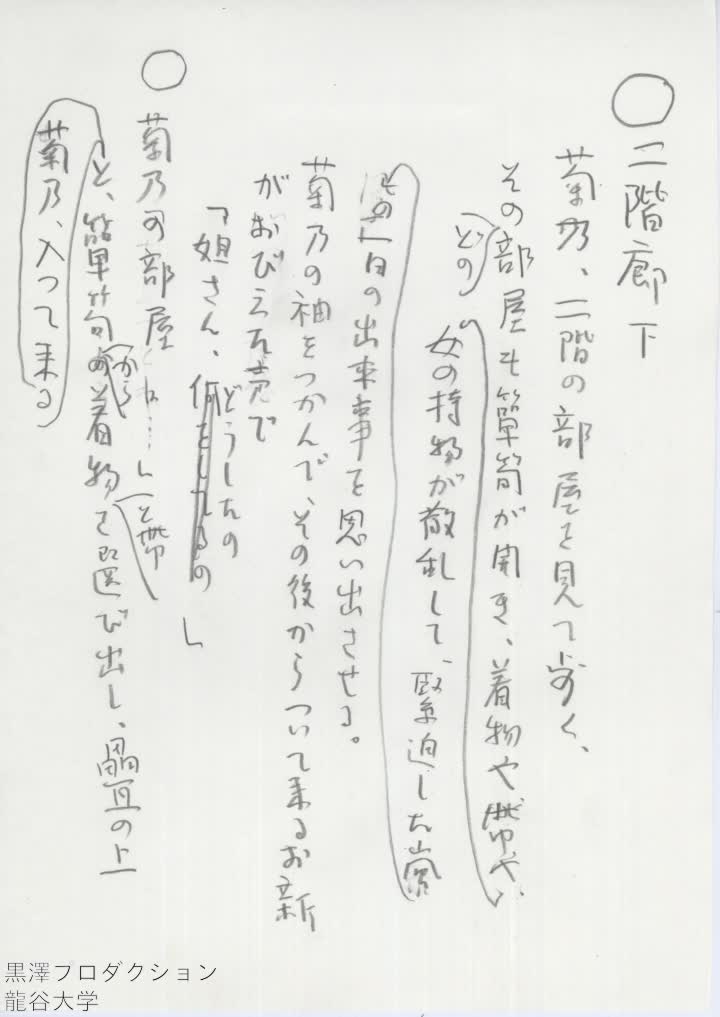 ○二階廊下
菊乃、二階の部屋を見て歩く、
その部屋も簞笥が開き、着物や帯や、
どの
女の持物が散乱して、緊迫した当
日の出来事を思い出させる。
菊乃の袖をつかんで、その後からついて来るお新
がおびえた声で
「姐さん、何をしてるの」
どうしたの
○菊乃の部屋
と、簞笥から着物を選び出し、畳の上
と帯
菊乃、入って来る
黒澤プロダクション
龍谷大学